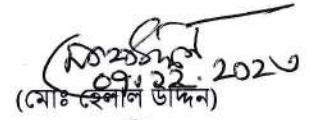 ০৭.১২.২০২৩
(মোঃ হেলাল উদ্দিন)